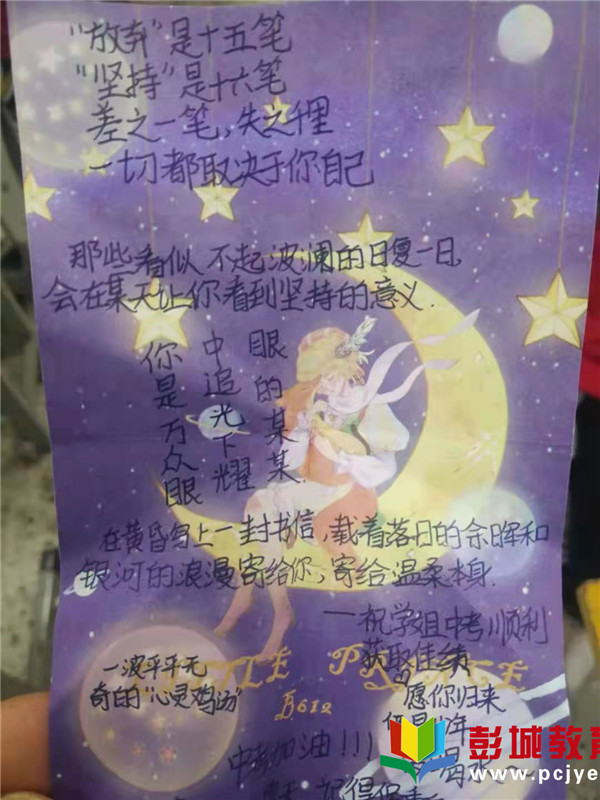 "放弃"是十五笔
"坚持"是十六笔
差之一笔,失之千里
一切都取决于你自己
那些看似不起波澜的日复一日,
会在某天让你看到坚持的意义.
你是万众眼
中追光下耀
眼的某某.
在黄昏写上一封书信,载着落日的余晖和
银河的浪漫寄给你,寄给温柔本身.
——祝学姐中考顺利
获取佳绩
B.612
一波平平无
奇的"心灵鸡汤"
愿你归来
中考加油!!!
记得
彭城教育
www.pcjye